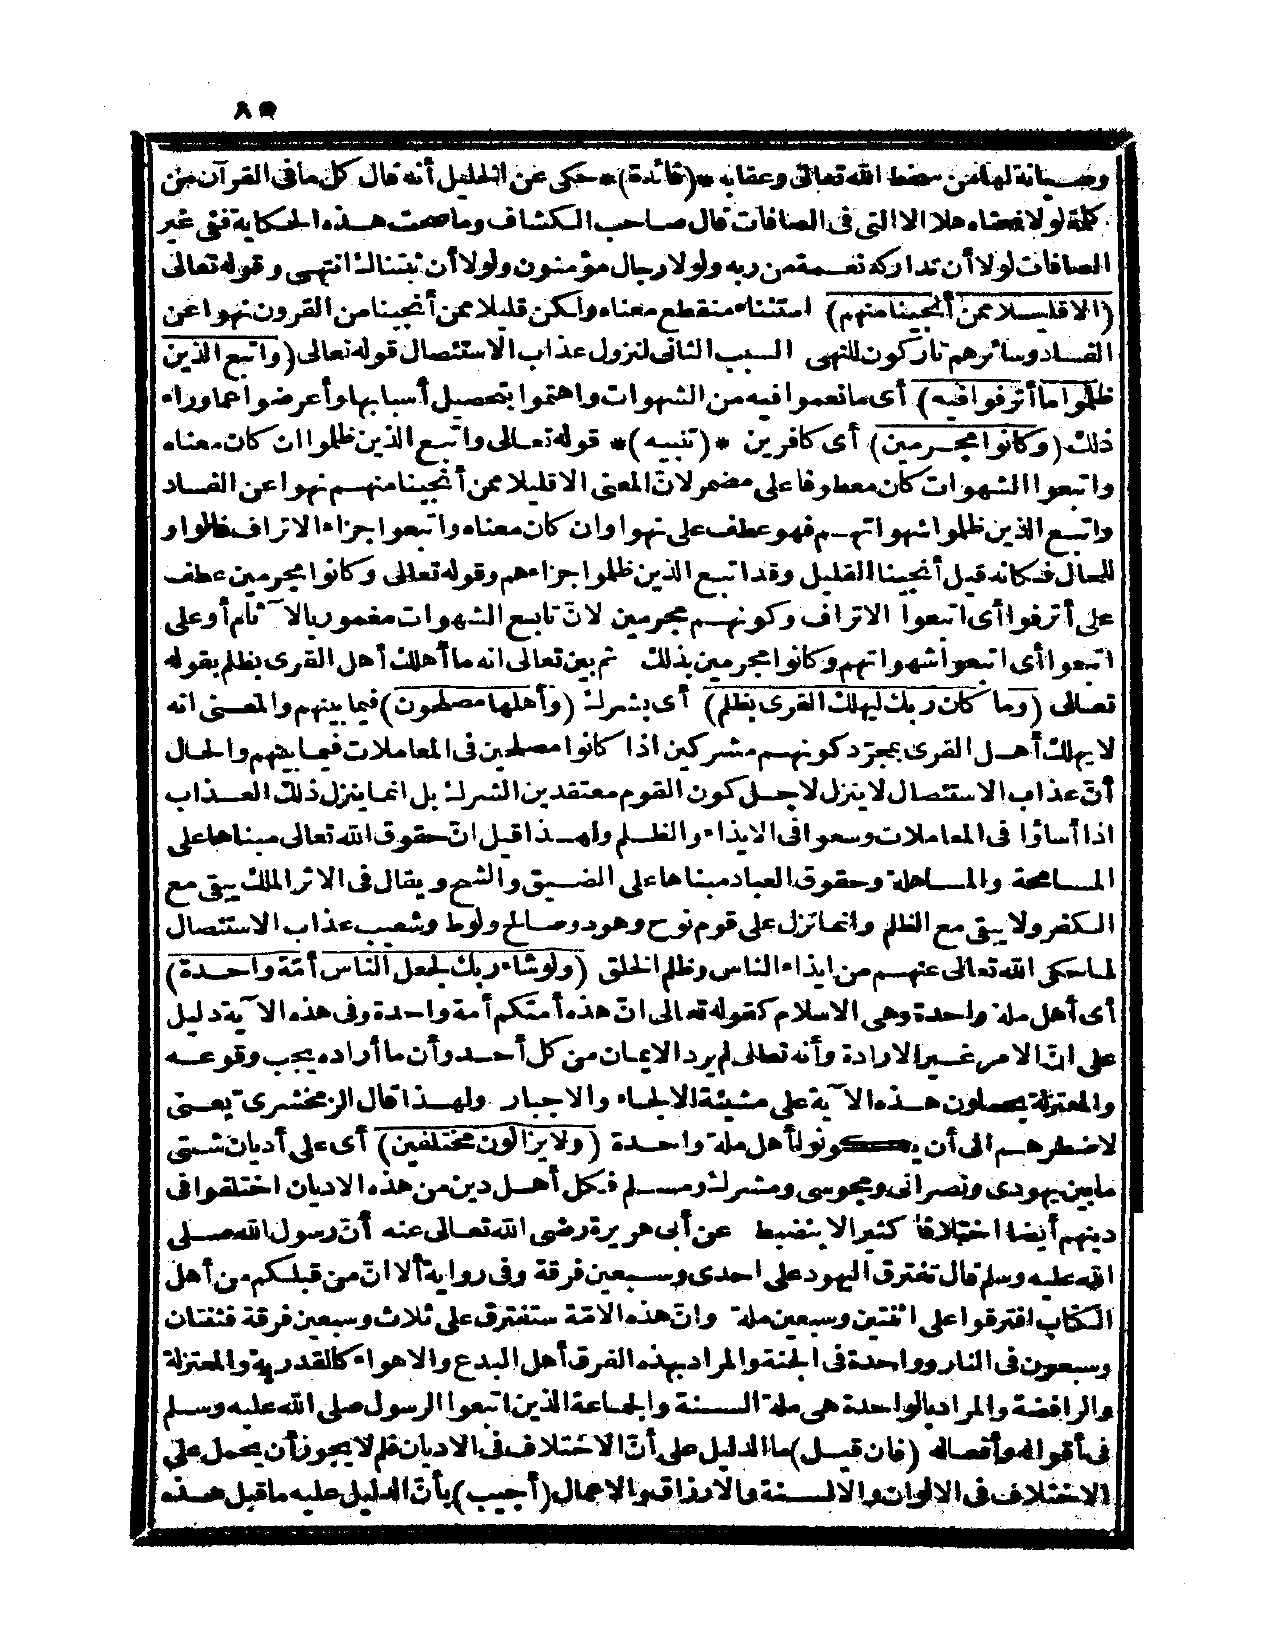 ٨٥
وصيانة لها من سخط الله تعالى وعقابه *(فائدة)* حكى عن الخليل أنه قال كل ما فى القرآن من
كلمة لولا فمعناه هلا الا التى فى الصافات قال صاحب الكشاف وما صحت هذه الحكاية ففى غير
الصافات لولا أن تداركه نعمة من ربه ولولا رجال مؤمنون ولولا أن ثبتناك انتهى وقوله تعالى
(الا قليلا ممن أنجينا منهم) استثناء منقطع معناه ولكن قليلا ممن أنجينا من القرون نهوا عن
الفساد وسائرهم تاركون للنهى السبب الثانى لنزول عذاب الاستئصال قوله تعالى (واتبع الذين
ظلموا ما أترفوا فيه) أى ما نعموا فيه من الشهوات واهتموا بتحصيل أسبابها وأعرضوا عما وراء
ذلك (وكانوا مجرمين) أى كافرين *(تنبيه)* قوله تعالى واتبع الذين ظلموا ان كان معناه
واتبعوا الشهوات كان معطوفا على مضمر لانّ المعنى الا قليلا ممن أنجينا منهم نهوا عن الفساد
واتبع الذين ظلموا شهواتهم فهو عطف على نهوا وان كان معناه واتبعوا جزاء الاتراف فالواو
للحال فكانه قيل أنجينا القليل وقد اتبع الذين ظلموا جزاءهم وقوله تعالى وكانوا مجرمين عطف
على أترفوا أى اتبعوا الاتراف وكونهم مجرمين لانّ تابع الشهوات مغمور بالا ثام أو على
اتبعوا أى اتبعوا شهواتهم وكانوا مجرمين بذلك ثم بين تعالى انه ما أهلك أهل القرى بظلم بقوله
تعالى (وما كان ربك ليهلك القرى بظلم) أى بشرك (وأهلها مصلحون) فيما بينهم والمعنى انه
لا يهلك أهل القرى بمجرّد كونهم مشركين اذا كانوا مصلحين فى المعاملات فيما بينهم والحال
أنّ عذاب الاستئصال لا ينزل لاجل كون القوم معتقدين الشرك بل انما ينزل ذلك العذاب
اذا أساؤا فى المعاملات وسعوا فى الايذاء والظلم ولهذا قيل انّ حقوق الله تعالى مبناها على
المسامحة والمساهلة وحقوق العباد مبناها على الضيق والشح ويقال فى الاثر الملك يبقى مع
الكفر ولا يبقى مع الظلم وانما نزل على قوم نوح وهود وصالح ولوط وشعيب عذاب الاستئصال
لما حكى الله تعالى عنهم من ايذاء الناس وظلم الخلق (ولو شاء ربك لجعل الناس أمّة واحدة)
أى أهل ملة واحدة وهى الاسلام كقوله تعالى انّ هذه أمتكم أمة واحدة وفى هذه الا ية دليل
على انّ الامر غير الارادة وأنه تعالى لم يرد الايمان من كل أحد وأن ما أراده يجب وقوعه
والمعتزلة يحملون هذه الا ية على مشيئة الالجاء والاجبار ولهذا قال الزمخشرى يعنى
لاضطرهم الى أن يكونوا أهل ملة واحدة (ولا يزالون مختلفين) أى على أديان شتى
ما بين يهودى ونصرانى ومجوسى ومشرك ومسلم فكل أهل دين من هذه الاديان اختلفوا فى
دينهم أيضا اختلافا كثيرا لا ينضبط عن أبى هريرة رضى الله تعالى عنه أنّ رسول الله صلى
الله عليه وسلم قال تفترق اليهود على احدى وسبعين فرقة وفى رواية ألا انّ من قبلكم من أهل
الكتاب افترقوا على اثنتين وسبعين ملة وانّ هذه الامّة ستفترق على ثلاث وسبعين فرقة فثنتان
وسبعون فى النار وواحدة فى الجنة والمراد بهذه الفرق أهل البدع والاهواء كالقدرية والمعتزلة
والرافضة والمراد بالواحدة هى ملة السنة والجماعة الذين اتبعوا الرسول صلى الله عليه وسلم
فى أقواله وأفعاله (فان قيل) ما الدليل على أنّ الاختلاف فى الاديان فلم لا يجوز أن يحمل على
الاختلاف فى الالوان والالسنة والارزاق والاعمال (أجيب) بأنّ الدليل عليه ما قبل هذه